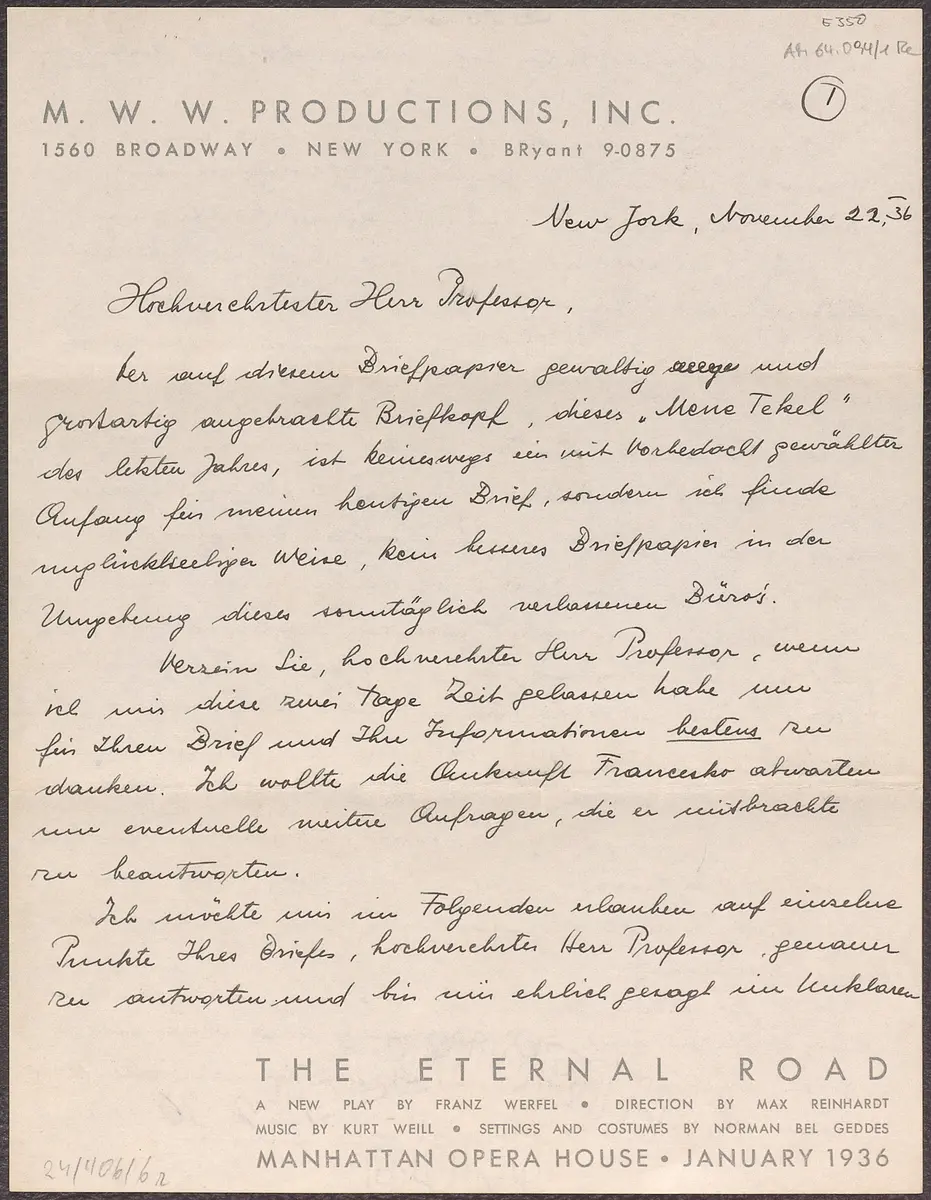 E350
M. W. W. PRODUCTIONS, INC.
1560 BROADWAY • NEW YORK • BRyant 9-0875
I
New Jork, November 22, 36
Hochverehrtester Herr Professor,
der auf diesem Briefpapier gewaltig und
grossartig angebrachte Briefkopf, dieses „Mene Tekel"
des letzten Jahres, ist keineswegs ein mit Vorbedacht gewählter
Anfang für meinen heutigen Brief, sondern ich finde
unglückseeliger Weise, kein besseres Briefpapier in der
Umgebung dieses sonntäglich verlassenen Büro's.
Verzein Sie, hochverehrter Herr Professor, wenn
ich mir diese zwei Tage Zeit gelassen habe um
für Ihren Brief und Ihre Informationen bestens zu
danken. Ich wollte die Ankunft Francesko abwarten
um eventuelle weitere Anfragen, die er mitbrachte
zu beantworten.
Ich möchte mir im Folgenden erlauben auf einzelne
Punkte Ihres Briefes, hochverehrter Herr Professor, genauer
zu antworten und bin mir ehrlich gesagt im Unklaren
THE ETERNAL ROAD
A NEW PLAY BY FRANZ WERFEL • DIRECTION BY MAX REINHARDT
MUSIC BY KURT WEILL • SETTINGS AND COSTUMES BY NORMAN BEL GEDDES
MANHATTAN OPERA HOUSE • JANUARY 1936
24/406/6